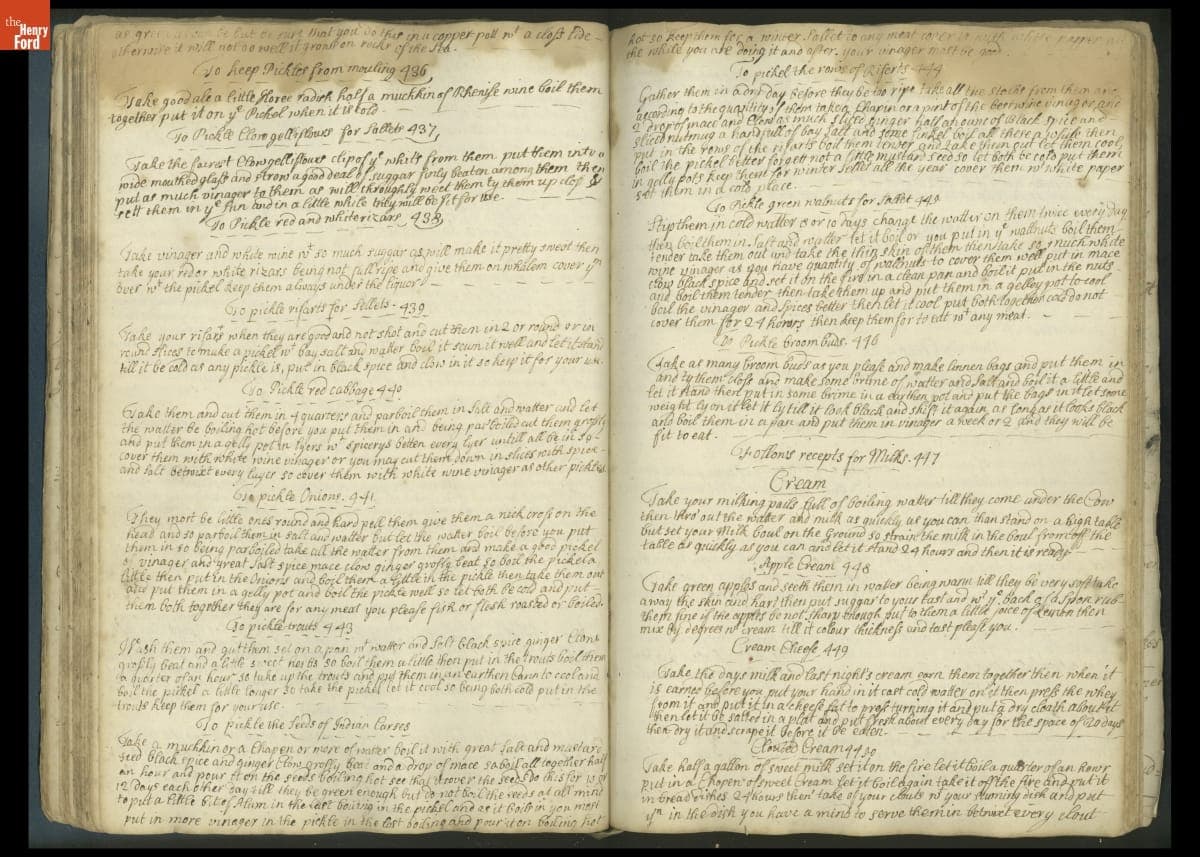 the
Henry
Ford
that you do this in a copper pott wt a closs lide
otherwise it will not do well it grows on rocks of the Sea
To keep Pickles from mouling 436
Take good ale a little Horse radish half a muchkin of Rhenise wine boil them
together put it on ye Pickel when it is cold
To Pickle Clow gelliflours for Sallets 437
Take the fairest Clow gelliflours clip of ye whits from them put them into a
wide mouthed glass and strow a good deal of suggar finly beaten among them then
put as much vinager to them as will throughly weet them ty them up closs &
sett them in ye sun and in a little while they will be fit for use.
To Pickle red and white rizars 438
Take vinager and white wine wt so much suggar as will make it pretty sweet then
take your red or white rizars being not full ripe and give them on whalem cover ym
over wt the pickel keep them always under the liquor
To pickle rifarts for Sellets 439
Take your rifarts when they are good and not shot and cut them in 2 or round or in
round slices to make a pickel wt bay salt and watter boil it scum it well and let it stand
till it be cold as any pickle is, put in black spice and clow in it so keep it for your use.
To Pickle red Cabbage 440
Take them and cut them in 4 quarters and parboil them in Salt and watter and let
the watter be boiling hot before you put them in and being parboiled cut them grosly
and put them in a gelly pot in lyers wt spicerys betten every lyer untill all be in so
cover them with white wine vinager or you may cut them down in slices with spice
and salt betwixt every layer so cover them with white wine vinager as other pickles
To pickle Onions. 441
They most be little ones round and hard pell them give them a nick cross on the
head and so parboil them in salt and watter but let the watter boil before you put
them in so being parboiled take all the watter from them and make a good pickel
of vinager and great Salt spice mace clow ginger grosly beat so boil the pickel a
little then put in the Onions and boil them a little in the pickle then take them out
and put them in a gelly pot and boil the pickle well so let both be cold and put
them both together they are for any meat you please fish or flesh roasted or boiled.
To pickle trouts 443
Wash them and gutt them set on a pan wt watter and Salt black spice ginger Clows
grosly beat and a little sweet herbs so boil them a little then put in the trouts boil them
a quarter of an hour so take up the trouts and put them in an earthen cann to cool and
boil the pickel a little longer so take the pickel let it cool so being both cold put in the
trouts keep them for your use.
To pickle the Seeds of Indian Carses
Take a muchkin or a Chapen or more of watter boil it with great Salt and mustard
seed black spice and ginger Clow grosly beat and a drop of mace so boil all together half
an hour and pour it on the seeds boiling hot see that it cover the seeds do this for 10 or
12 days each other day till they be green enough but do not boil the seeds at all mind
to put a little bit of Alum in the last boiling in the pickel and as it boils in you most
put in more vinager in the pickle in the last boiling and pour it on boiling hot
hot so keep them for a winter Sallet to any meat cover it with white
the while you are doing it and after. your vinager most be good.
To pickel the rows of Rifarts 444
Gather them in a dry day before they be too ripe take all the stocks from them and
according to the quantity of them take a Chapin or a pint of the beer wine vinager and
2 drop of mace and Clow as much sliced ginger half an ounc of black spice and
sliced nutmug a handfull of bay salt and some finkel boil all these a while then
put in the rows of the rifarts boil them tender and take them out let them cool
boil the pickel better forgett not a little mustard seed so let both be cold put them
in gelly pots keep them for winter Sellet all the year cover them wt white paper
set them in a cold place.
To Pickle green walnuts for Sallet 445
Stip them in cold watter 8 or 10 days change the watter on them twice every day
then boil them in Salt and watter let it boil or you put in ye wallnuts boil them
tender take them out and take the thin skin of them then take so much white
wine vinager as you have quantity of wallnuts to cover them well put in mace
clow black spice and set it on the fire in a clean pan and boil it put in the nuts
and boil them tender then take them up and put them in a gelley pot to cool
boil the vinager and spices better then let it cool put both together cold do not
cover them for 24 hours then keep them for to eat wt any meat.
To Pickle broom buds. 446
Take as many broom buds as you please and make linnen bags and put them in
and ty them closs and make some brine of watter and Salt and boil it a little and
let it stand then put in some brime in a earthen pot and put the bags in it let some
weight ly on it let it ly till it look black and shift it again as long as it looks black
and boil them in a pan and put them in vinager a week or 2 and they will be
fit to eat.
Follows recepts for Milks. 447
Cream
Take your milking pails full of boiling watter till they come under the Cow
then thro out the watter and milk as quickly as you can than stand on a high table
but set your Milk boul on the Ground so strain the milk in the boul from off the
table as quickly as you can and let it stand 24 hours and then it is ready
Apple Cream 448
Take green apples and seeth them in watter being warm till they be very soft take
away the skin and hart then put suggar to your tast and wt ye back of a spon rub
them fine if the apples be not sharp enough put to them a little joice of Lemon then
mix by degrees wt cream till it colour thickness and tast please you.
Cream Cheese 449
Take the days milk and last night's cream earn them together then when it
is earned before you put your hand in it cast cold watter on it then press the whey
from it and put it in a cheese fat to press turning it and put a dry cloath about it
then let it be salted in a plat and put fresh about every day for the space of 20 days
then dry it and scrape it before it be eaten.
Clouted Cream 450
Take half a gallon of sweet milk set it on the fire let it boil a quarter of an hour
put in a Chopen of sweet Cream let it boil again take it off the fire and put it
in bread dishes 24 hours then take of your clouts wt your skuming dish and put
ym in the dish you have a mind to serve them in betwixt every clout